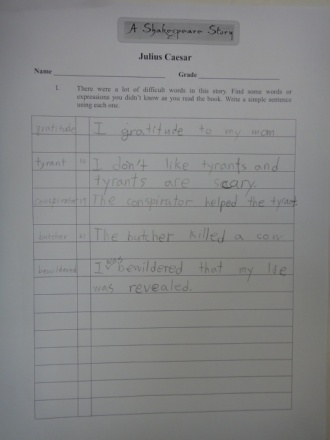 A Shakespeare Story
Julius Caesar
Name
Grade
I. There were a lot of difficult words in this story. Find some words or
expressions you didn't know as you read the book. Write a simple sentence
using each one.
gratitude I gratitude to my mom
tyrant I don't like tyrants and
tyrants are scary.
conspirator The conspirator helped the tyrant
butcher The butcher killed a cow
bewildered I was bewildered that my lie
was revealed.